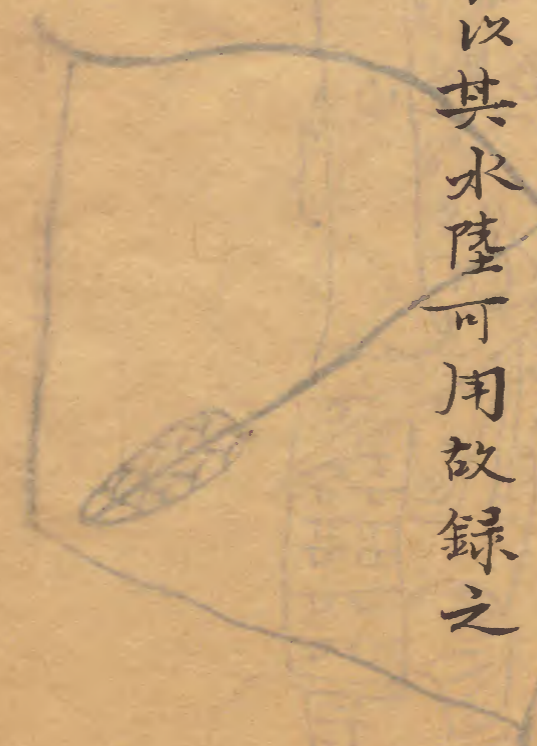 以其水陸可用故録之